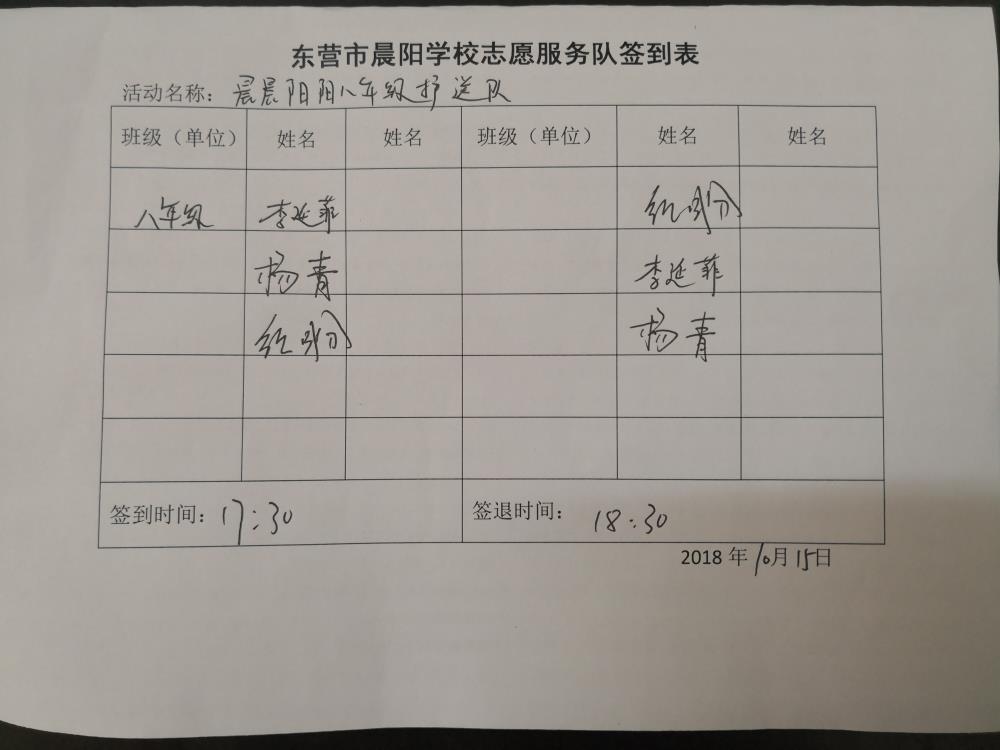 东营市晨阳学校志愿服务队签到表
活动名称：晨晨阳阳八年级护送队
班级（单位） 姓名 姓名 班级（单位） 姓名 姓名
八年级 李延菲
李延菲
杨青
杨青
签到时间：17:30 签退时间：18:30
2018年10月15日